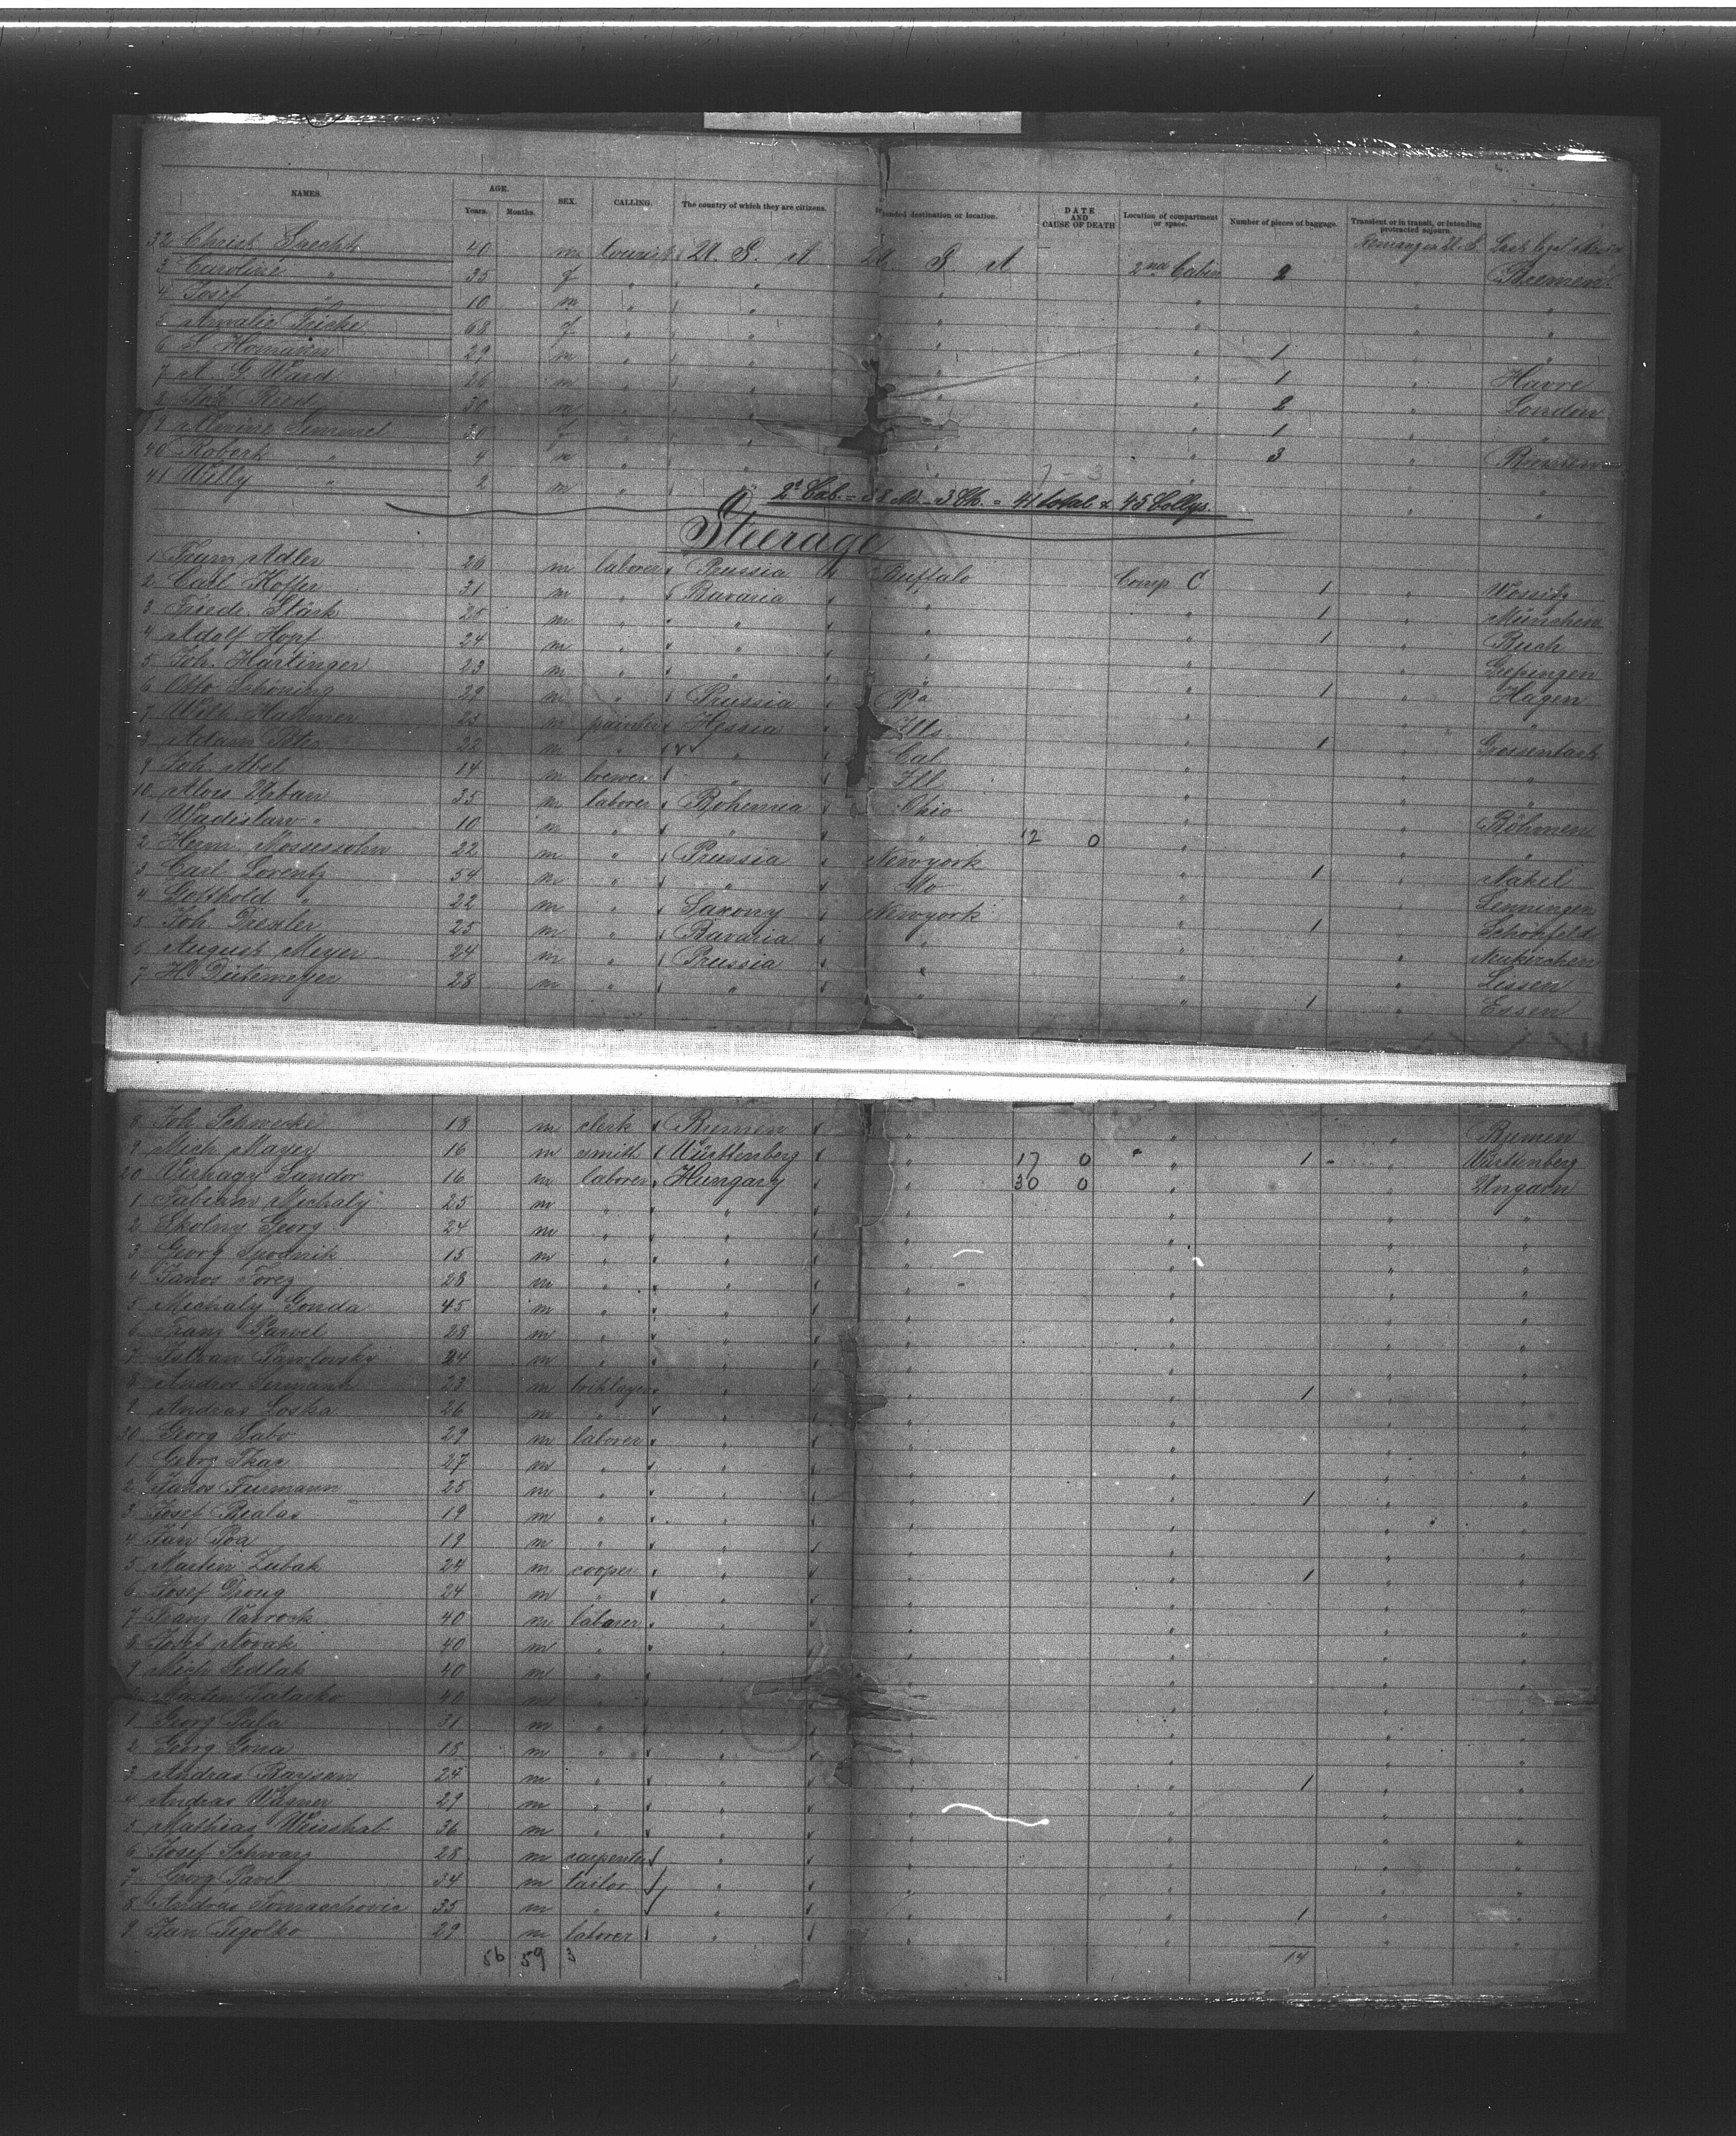 NAMES. AGE. Years. Months. SEX. CALLING. The country of which they are citizens. Intended destination or location. DATE AND CAUSE OF DEATH Location of compartment or space. Number of pieces of baggage. Transient or in transit, or intending protracted sojourn.
32 Christ. Specht 40 m tourist U. S. A U. S. A 2nd Cabin 2 Bremen
3 Caroline " 35 f " " " " "
4 Josef " 10 m " " " " "
5 Amalie Fricke 68 f " " " " 1 " "
6 S. Homann 29 m " " " " 1 " Havre
7 A. G. Ward 26 m " " " " 2 " London
8 Joh. Ried 30 m " " " " 1 " "
9 Almine Simmel 30 f " " " " 3 " Bremen
40 Robert " 4 m " " " " "
41 Willy " 2 m " " " "
2d Cab. = 38 Ad. - 3 Ch. = 41 total & 45 Collys.
Steerage
1 Adler 20 m laborer Prussia Buffalo Comp C 1 "
2 Carl Hoffer 31 m " Bavaria " " 1 " München
3 Friedr. Stark 25 m " " " " 1 " Buch
4 Adolf Hopf 24 m " " " "
5 Joh. Hartinger 23 m " " " " 1 " Hagen
6 Otto Schöning 29 m " Prussia Pa " "
7 Wilh. Hattmer 25 m painter Hessia Ills " 1 "
8 Adam 22 m " " Cal " "
9 Joh. Abel 14 m brewer " Ill " "
10 Alois Urban 35 m laborer Bohemia Ohio " " Böhmen
1 Wladislaw " 10 m " " " 12 0 " " "
2 Herm. Mossessohn 22 m " Prussia Newyork " 1 " Nakel
3 Carl Lorentz 54 m " " Mo " " Lenningen
4 Gotthold " 22 m " Saxony Newyork " 1 " Schönfeld
5 Joh. Drexler 25 m " Bavaria " " " Neukirchen
6 August Meyer 24 m " Prussia " " " Lissen
7 Hh. Dietemeyer 28 m " " " " 1 " Essen
8 Joh. Schwecke 18 m clerk Bremen " " " Bremen
9 Mich. Mayer 16 m smith Württenberg " 17 0 " 1 " Württenberg
20 Virhagy Sandor 16 m laborer Hungary " 30 0 " " Ungarn
1 Fabian Michaly 25 m " " " " " "
2 Skolny Georg 24 m " " " " " "
3 Georg Spodnik 15 m " " " " " "
4 Janos Torez 28 m " " " " " "
5 Michaly Gonda 45 m " " " " " "
6 Franz Pawel 28 m " " " " " "
7 Istvan Pawlovsky 24 m " " " " " "
8 Andras Germann 23 m briklayer " " " 1 " "
9 Andras Loska 26 m " " " " " "
30 Georg Sabo 29 m laborer " " " " "
1 Georg Tkac 27 m " " " " " "
2 Janos Furmann 25 m " " " " 1 " "
3 Josef Bialas 19 m " " " " " "
4 Jan 19 m " " " " " "
5 Martin Zubak 24 m cooper " " " 1 " "
6 Josef 24 m " " " " " "
7 Franz 40 m laborer " " " " "
8 Josef Novak 40 m " " " " " "
9 Mich. Sedlak 40 m " " " " " "
Martin 40 m " " " " " "
1 Georg 31 m " " " " " "
2 Georg Gona 18 m " " " " " "
3 Andras 24 m " " " " 1 " "
4 Andras Wagner 29 m " " " " " "
5 Mathias Weisshab 36 m " " " " " "
6 Josef Schwarz 28 m carpenter " " " " "
7 Georg Pavel 34 m tailor " " " " "
8 Andras Tomaschovic 35 m " " " " 1 " "
9 Jan Tegolko 29 m laborer " " " " "
56 59 3 14